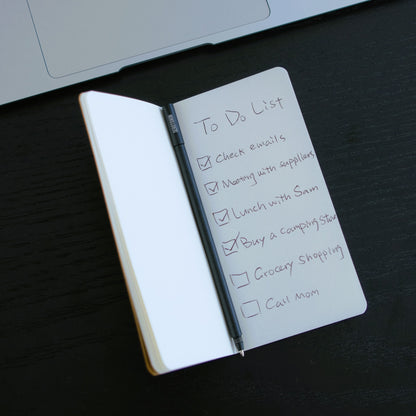 To Do List
Check emails
Meeting with suppliers
Lunch with Sam
Buy a camping stove
Grocery Shopping
Call Mom